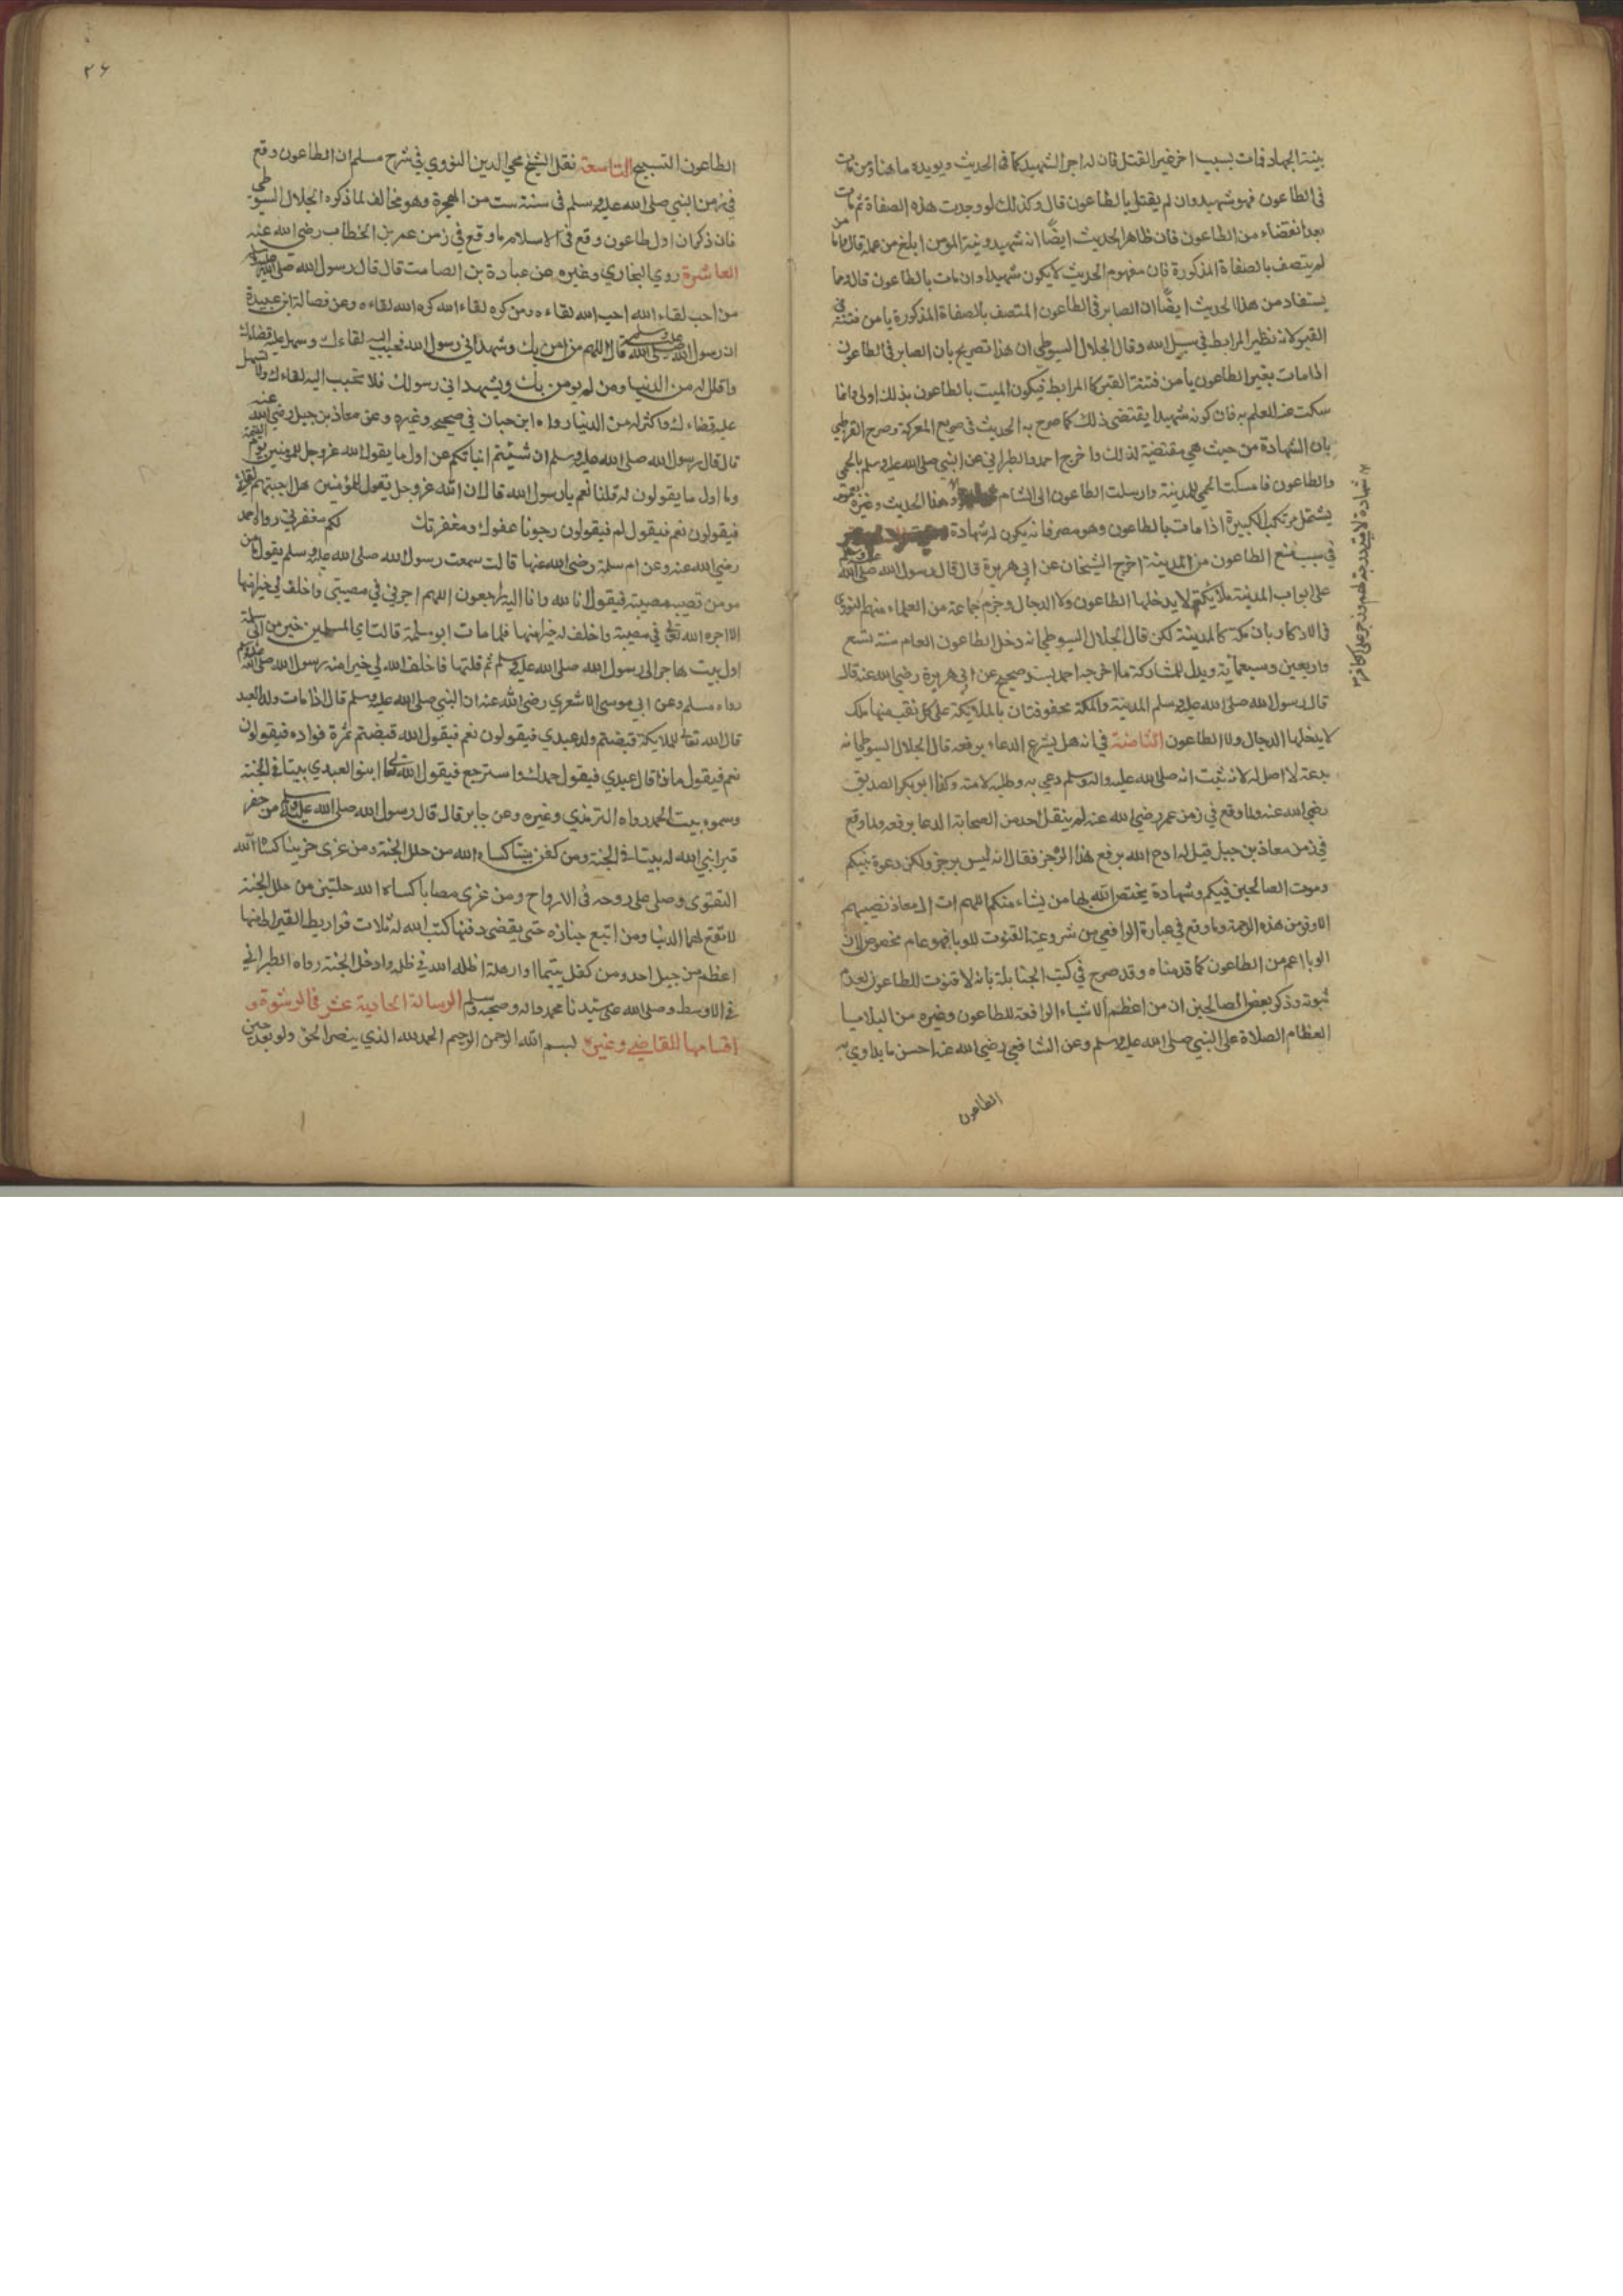 بنية الجهاد فمات بسبب اخر غير القتل فان له اجر الشهيد كما في الحديث ويويده ما هنا ومن مات
في الطاعون فهو شهيد وان لم يقتل بالطاعون قال وكذلك لو وجدت هذه الصفاة ثم مات
بعد انقضاء من الطاعون فان ظاهر الحديث ايضًا انه شهيد ونية المومن ابلغ من عمله قال واما من
لم يتصف بالصفاة المذكورة فان مفهوم الحديث لا يكون شهيدا وان مات بالطاعون قال ومما
يستفاد من هذا الحديث ايضًا ان الصابر في الطاعون المتصف بالصفاة المذكورة يامن فتنة
القبر لانه نظير المرابط في سبيل الله وقال الجلال السيوطي ان هذا تصريح بان الصابر في الطاعون
اذا مات بغير الطاعون يأمن فتنة القبر كالمرابط فيكون الميت بالطاعون بذلك اولى وانما
سكت عنه للعلم به فان كونه شهيدا يقتضي ذلك كما صرح به الحديث في المعركة وصرح القرطبي
بان الشهادة من حيث هي مقتضية لذلك واخرج احمد والطبراني عن النبي صلى الله عليه وسلم بالحمى
والطاعون فامسكت الحمى للمدينة وارسلت الطاعون الى الشام وهذا الحديث وغيره
يشتمل مرتكب الكبيرة اذا مات بالطاعون وهو مصر فانه يكون له شهادة
في سبب منع الطاعون من المدينة اخرج الشيخان عن ابي هريرة قال قال رسول الله صلى الله عليه وسلم
على ابواب المدينة ملائكة لا يدخلها الطاعون ولا الدجال وجزم جماعة من العلماء منهم النووي
في الاذكار وبان مكة كالمدينة لكن قال الجلال السيوطي انه دخل الطاعون العام سنة تسع
واربعين وسبعمائة ويدل للمشاركة ما اخرجه احمد بسند صحيح عن ابي هريرة رضي الله عنه قال
قال رسول الله صلى الله عليه وسلم المدينة والمكة محفوفتان بالملايكة على كل نقب منها ملك
لا يدخلها الدجال ولا الطاعون الثامنة في انه هل يشرع الدعاء برفعه قال الجلال السيوطي انه
بدعة لا اصل له لانه ثبت انه صلى الله عليه واله وسلم دعي به وطلبه لامته وكذا ابو بكر الصديق
رضي الله عنه ولما وقع في زمن عمر رضي الله عنه لم ينقل احد من الصحابة الدعا برفعه ولما وقع
في زمن معاذ بن جبل قيل له ادع الله برفع هذا الرجز فقال انه ليس برجز ولكن دعوة نبيكم
وموت الصالحين قبلكم وشهادة يختص الله بها من يشاء منكم اللهم ات ال معاذ نصيبهم
الاوفر من هذه الرحمة وما وقع في عبارة الرافعي من شروعية القنوت للوبا فهو عام مخصوص لان
الوبا اعم من الطاعون كما قدمناه وقد صرح في كتب الحنابلة بانه لا قنوت للطاعون لعدم
ثبوته وذكر بعض الصالحين ان من اعظم الاشياء الرافعة للطاعون وغيره من البلايا
العظام الصلاة على النبي صلى الله عليه وسلم وعن الشافعي رضي الله عنه احسن ما يداوي به
الطاعون
الطاعون التسبيح التاسعة نقل الشيخ محي الدين النووي في شرح مسلم ان الطاعون وقع
في زمن النبي صلى الله عليه وسلم في سنة ست من الهجرة وهو مخالف لما ذكره الجلال السيوطي
فان ذكر ان اول طاعون وقع في الاسلام ما وقع في زمن عمر بن الخطاب رضي الله عنه
العاشرة روي البخاري وغيره عن عبادة بن الصامت قال قال رسول الله صلى الله عليه وسلم
من احب لقاء الله احب الله لقاءه ومن كره لقاء الله كره الله لقاءه وعن فضالة ابن عبيدة
ان رسول الله صلى الله عليه وسلم قال اللهم من امن بك وشهد اني رسول الله فحبب اليه لقاءك وسهل عليه قضاءك
واقلل له من الدنيا ومن لم يومن بك ويشهد اني رسولك فلا تحبب اليه لقاءك ولا تسهل
عليه قضاءك واكثر له من الدنيا رواه ابن حبان في صحيحه وغيره وعن معاذ بن جبل رضي الله عنه
قال قال رسول الله صلى الله عليه وسلم ان شئتم انباتكم عن اول ما يقول الله عز وجل للمومنين يوم القيمة
وما اول ما يقولون له قلنا نعم يا رسول الله قال ان الله عز وجل يقول للمؤمنين هل احببتم لقائي
فيقولون نعم فيقول لم فيقولون رجونا عفوك ومغفرتك لكم مغفرتي رواه احمد
رضي الله عنه وعن ام سلمة رضي الله عنها قالت سمعت رسول الله صلى الله عليه وسلم يقول ما من
مومن تصيبه مصيبة فيقول انا لله وانا اليه راجعون اللهم اجرني في مصيبتي واخلف لي خيرا منها
الا اجره الله تعالى في مصيبة واخلف له خيرا منها فلما مات ابو سلمة قالت اي المسلمين خير من ابي سلمة
اول بيت هاجر الى رسول الله صلى الله عليه وسلم ثم قلتها فاخلف الله لي خيرا منه رسول الله صلى الله عليه وسلم
رواه مسلم وعن ابي موسى الاشعري رضي الله عنه ان النبي صلى الله عليه وسلم قال اذا مات ولد العبد
قال الله تعالى للملايكة قبضتم ولد عبدي فيقولون نعم فيقول الله قبضتم ثمرة فواده فيقولون
نعم فيقول ماذا قال عبدي فيقول حمدك واسترجع فيقول الله تعالى ابنوا لعبدي بيتا في الجنة
وسموه بيت الحمد رواه الترمذي وغيره وعن جابر قال قال رسول الله صلى الله عليه وسلم من حفر
قبرا بني الله له بيتا في الجنة ومن كفن ميتا كساه الله من حلل الجنة ومن عزى حزينا كساه الله
التقوى وصلى على روحه في الارواح ومن عزى مصابا كساه الله حلتين من حلل الجنة
لا تقع لهما الدنيا ومن اتبع جنازة حتى يقضى دفنها كتب الله له ثلاث قراريط القيراط منها
اعظم من جبل احد ومن كفل يتيما او ارملة اظله الله في ظله وادخل الجنة رواه الطبراني
في الاوسط وصلى الله على سيدنا محمد واله وصحبه وسلم الرسالة الحادية عشر في الرشوة و
اقسامها للقاضي وغيره بسم الله الرحمن الرحيم الحمد لله الذي ينصر الحق ولو بعد حين